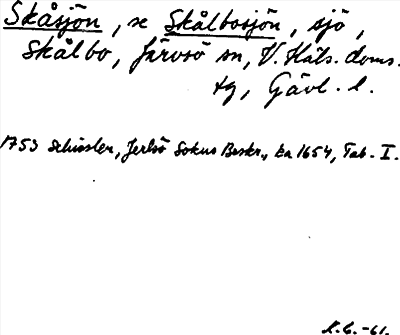 Skåsjön, se Skålbosjön, sjö,
Skålbo, Järvsö sn, V. Häls. doms.
tg, Gävl. l.
1753 Schissler, Jerfsö Sokns Beskr., ka 1654, Tab. I.
L. G. -61.